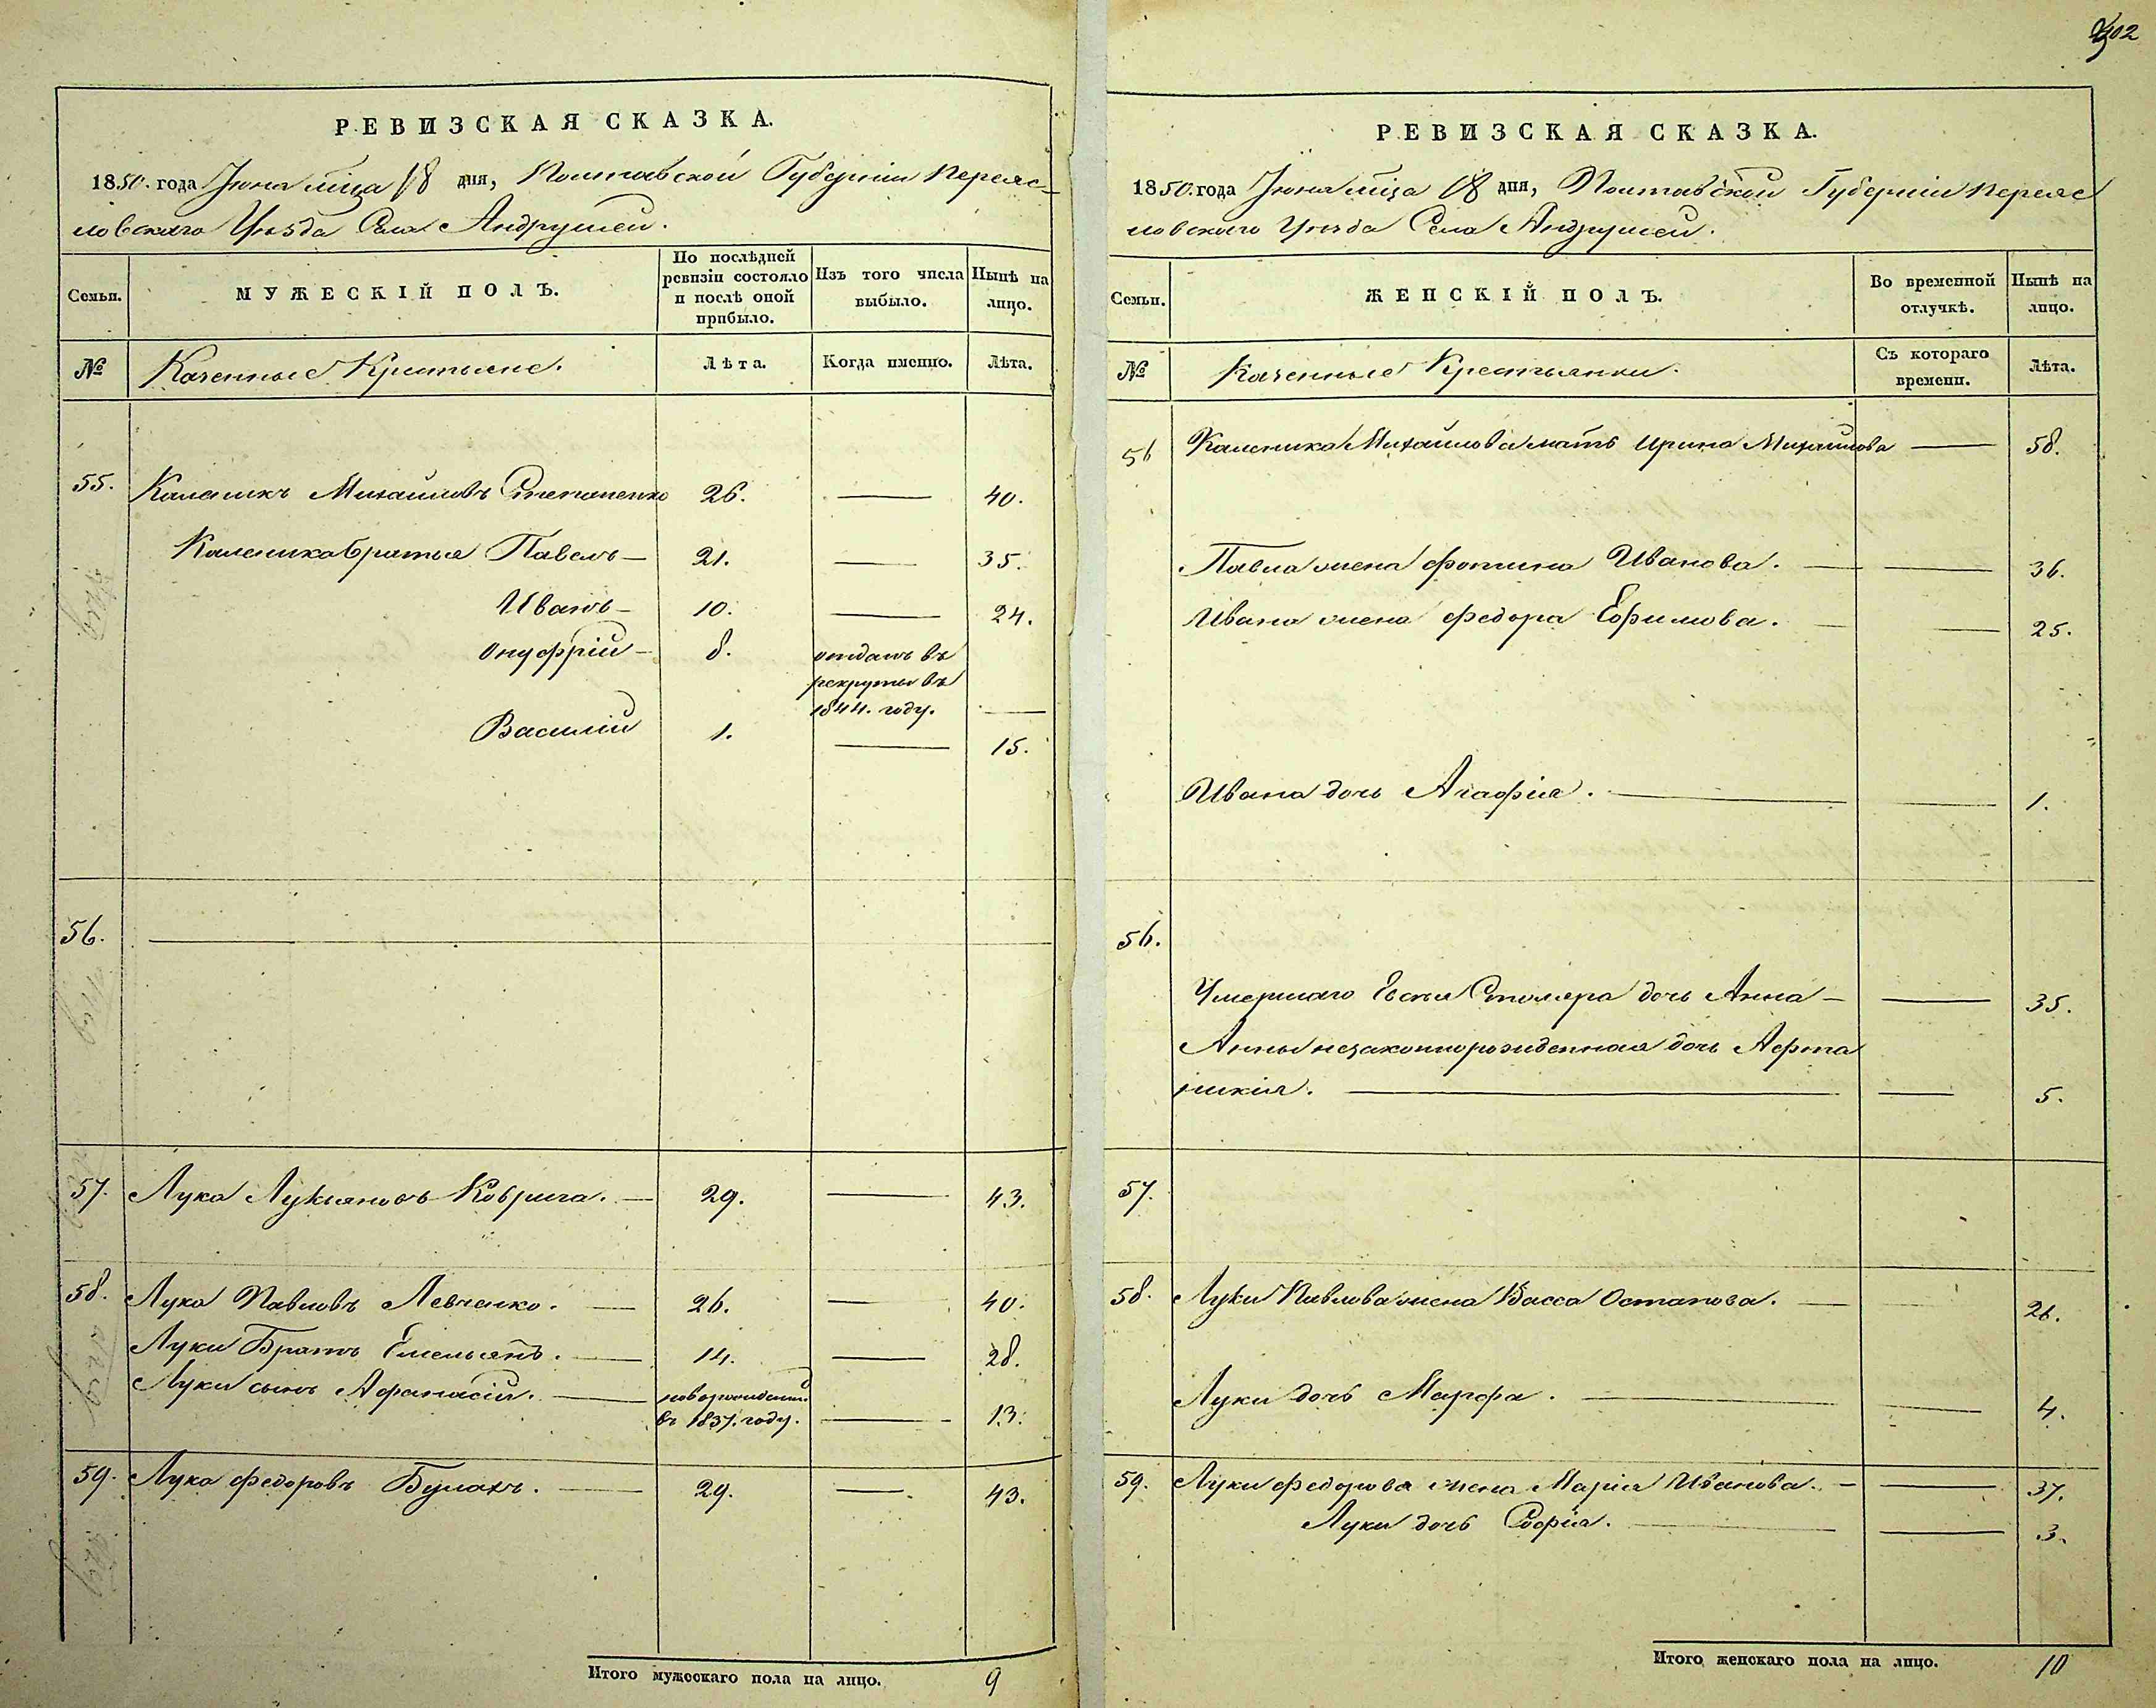 302
РЕВИЗСКАЯ СКАЗКА.
1850. года Іюня м̃ца 18 дня, Полтавской Губерніи Переяс-
ловскаго Уѣзда Села Андрушей.
Семьи.
МУЖЕСКІЙ ПОЛЪ.
По послѣдней
ревизіи состояло
и послѣ оной
прибыло.
Изъ того числа
выбыло.
Нынѣ на
лицо.
№
Казенные Крестьяне.
Лѣта.
Когда именно.
Лѣта.
55. Каленикъ Михайловъ Степаненко 26. — 40.
Каленика братья Павелъ — 21. — 35.
Иванъ — 10. — 24.
Онуфрій — 8. отданъ въ
рекруты въ
1844. году. —
Василій 1. — 15.
56. —
57. Лука Лукьяновъ Коврига. — 29. — 43.
58. Лука Павловъ Левченко. — 26. — 40.
Луки Братъ Емельянъ. — 14. — 28.
Луки сынъ Афанасій. — новорожденный
въ 1837. году. — 13.
59. Лука Федоровъ Булахъ. — 29. — 43.
Итого мужескаго пола на лицо. 9
РЕВИЗСКАЯ СКАЗКА.
1850. года Іюня м̃ца 18 дня, Полтавской Губерніи Переяс
ловскаго Уѣзда Села Андрушей.
Семьи.
ЖЕНСКІЙ ПОЛЪ.
Во временной
отлучкѣ.
Нынѣ на
лицо.
№
Казенные Крестьянки.
Съ котораго
времени.
Лѣта.
Каленика Михайлова мать Ирина Михайлова — 58.
Павла жена Фотина Иванова. — — 36.
Ивана жена Федора Ефимова. — — 25.
Ивана дочь Агафія. — — 1.
56.
Умершаго Евсѣя Столяра дочь Анна — — 35.
Анны незаконнорожденная дочь Афта
никія. — — 5.
57.
58. Луки Павлова жена Васса Остапова. — 26.
Луки дочь Марфа. — — 4.
59. Луки Федорова жена Марія Иванова. — — 37.
Луки дочь Софія. — — 3.
Итого женскаго пола на лицо. 10